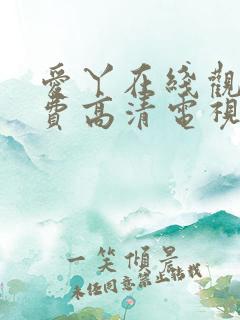 愛丫在綫觀
費高清電視
一笑傾景
未经同意禁止转载